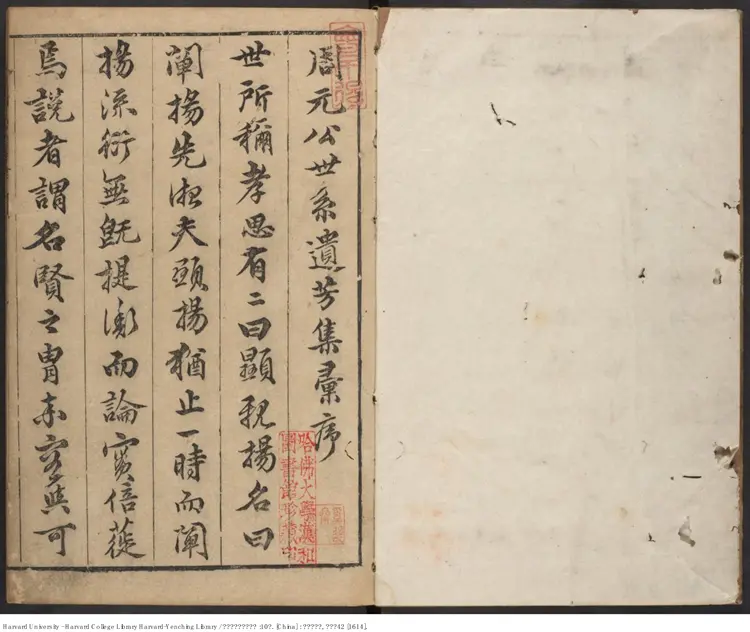 周元公世系遺芳集彙序
世所稱孝思有二曰顯親揚名曰
闡揚先淑夫顯揚猶止一時而闡
揚流衍無既提衡而論寔倍蓰
焉說者謂名賢之胄未容與可
哈佛大學漢和
圖書館珍藏印
Harvard University - Harvard College Library Harvard-Yenching Library / ????????? :10?. [China] : ?????, ???42 [1614].